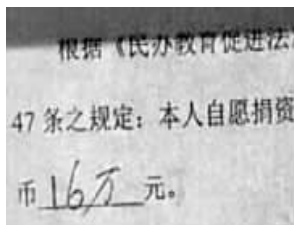 根据《民办教育促进法
47 条之规定：本人自愿捐资
币 16万 元。